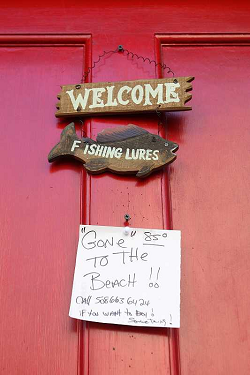 WELCOME
FISHING LURES
"GONE" 85°
TO THE
BEACH !!
CALL 508 663 6424
IF YOU WANT TO BUY
!